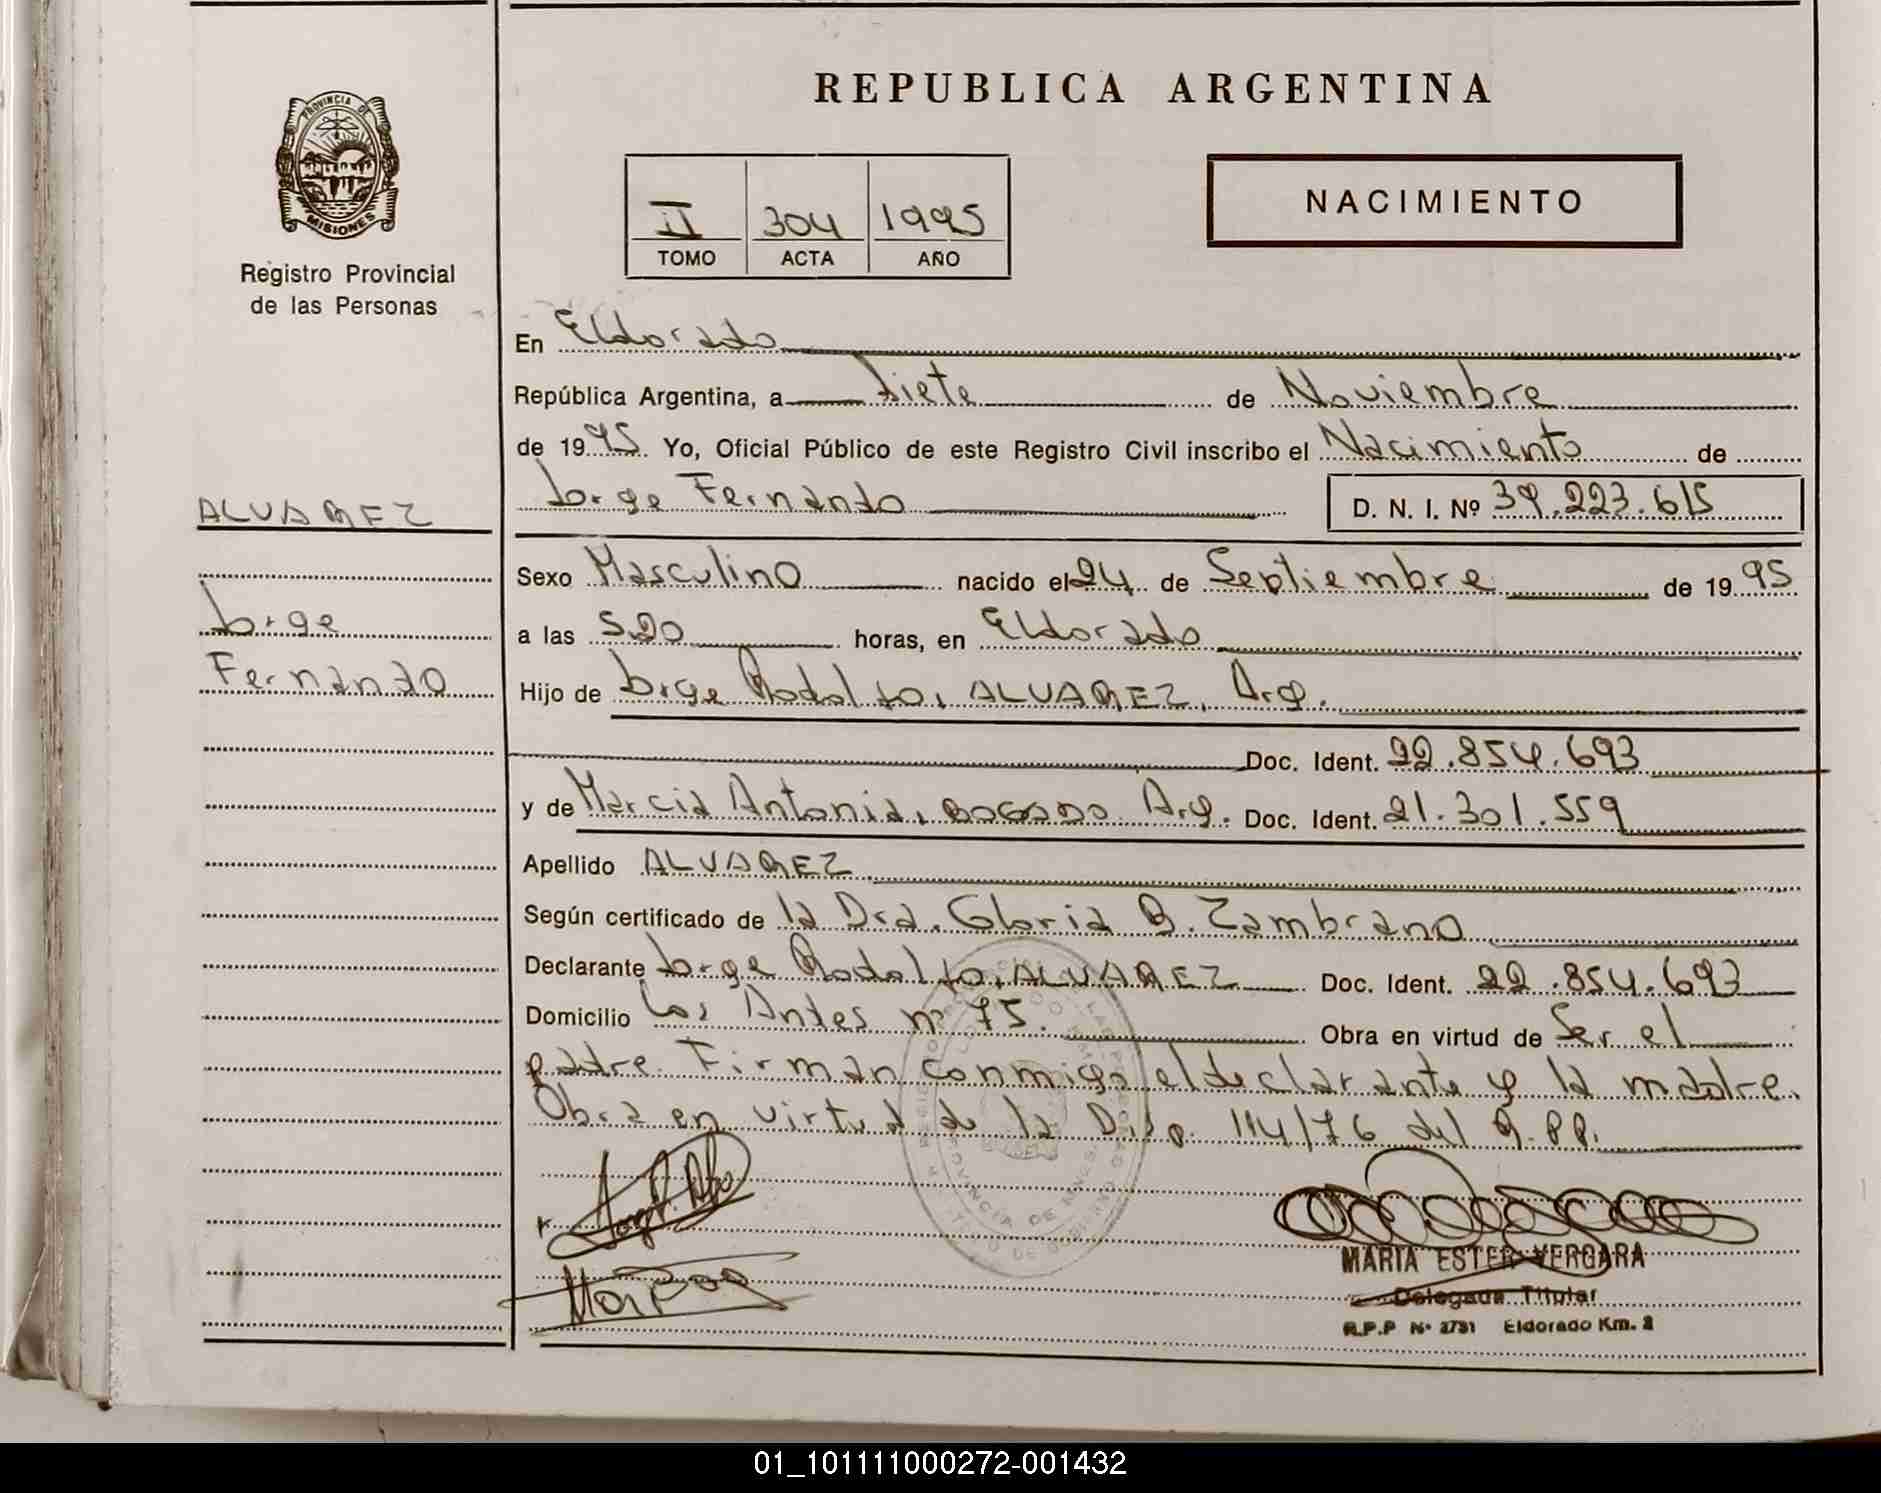 REPUBLICA ARGENTINA
PROVINCIA DE
MISIONES
Registro Provincial
de las Personas
II 304 1995
TOMO ACTA AÑO
NACIMIENTO
En Eldorado
República Argentina, a Siete de Noviembre
de 1995 Yo, Oficial Público de este Registro Civil inscribo el Nacimiento de
Jorge Fernando D. N. I. Nº 39.223.615
ALVAREZ
Jorge
Fernando
Sexo Masculino nacido el 24 de Septiembre de 1995
a las 5.20 horas, en Eldorado
Hijo de Jorge Rodolfo, ALVAREZ, Arg.
Doc. Ident. 22.854.693
y de Marcia Antonia, BOGADO Arg. Doc. Ident. 21.301.559
Apellido ALVAREZ
Según certificado de la Dra. Gloria B. Zambrano
Declarante Jorge Rodolfo, ALVAREZ Doc. Ident. 22.854.693
Domicilio Los Antes nº 75. Obra en virtud de Ser el
padre. Firman conmigo el declarante y la madre.
Obra en virtud de la Disp. 114/76 del R.PP.
PROVINCIA DE MISIONES
MARIA ESTER VERGARA
Delegada Titular
R.P.P Nº 2731 Eldorado Km. 2
01_101111000272-001432